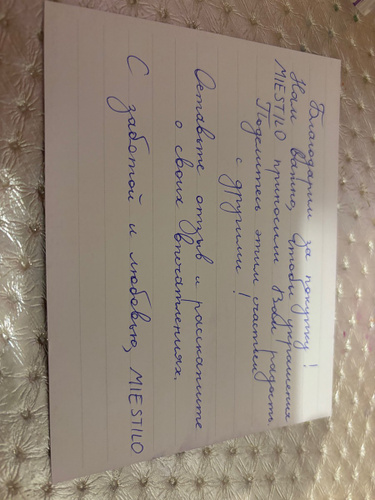 Благодарим за покупку!
Нам важно, чтобы украшения
MIESTILO приносили Вам радость
Поделитесь этим счастьем
с другими!
Оставьте отзыв и расскажите
о своих впечатлениях.
С заботой и любовью, MIESTILO